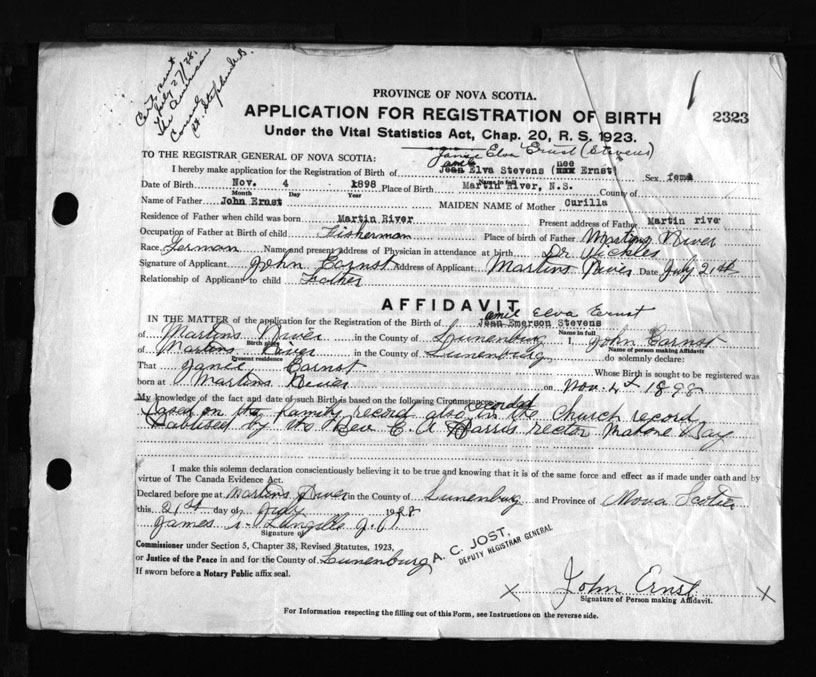 Cert sent
July 27/28
the American
Consul
St. Stephen N.B.
PROVINCE OF NOVA SCOTIA.
APPLICATION FOR REGISTRATION OF BIRTH
2323
Under the Vital Statistics Act, Chap. 20, R. S. 1923.
Janie Elva Ernst (Stevens)
TO THE REGISTRAR GENERAL OF NOVA SCOTIA:
I hereby make application for the Registration of Birth of Jean Elva Stevens (nee Ernst) Sex fema
Name in full
Date of Birth Nov. 4 1898 Place of Birth Martin River, N.S. County of
Month Day Year
Name of Father John Ernst MAIDEN NAME of Mother Curilla
Residence of Father when child was born Martin River Present address of Father Martin rive
Occupation of Father at Birth of child Fisherman Place of birth of Father Martins River
Race German Name and present address of Physician in attendance at birth Dr
Signature of Applicant John Earnst Address of Applicant Martins River Date July 21st
Relationship of Applicant to child Father
AFFIDAVIT
amie Elva Ernst
IN THE MATTER of the application for the Registration of the Birth of Jean Emerson Stevens
Name in full
of Martins River in the County of Lunenburg I, John Earnst
Birth place Name of person making Affidavit
of Martins River in the County of Lunenburg do solemnly declare:
Present residence
That Janie Earnst Whose Birth is sought to be registered was
born at Martins River on Nov. 4th 1898
My knowledge of the fact and date of such Birth is based on the following Circumstances
recorded
Based on the family record also in the Church record
by the Rev C. A Harris rector Mahone Bay
I make this solemn declaration conscientiously believing it to be true and knowing that it is of the same force and effect as if made under oath and by
virtue of The Canada Evidence Act.
Declared before me at Martins River in the County of Lunenburg and Province of Nova Scotia
this 21st day of July 1928
James Langille J.P.
Signature of
Commissioner under Section 5, Chapter 38, Revised Statutes, 1923,
or Justice of the Peace in and for the County of Lunenburg
A. C. JOST,
DEPUTY REGISTRAR GENERAL
If sworn before a Notary Public affix seal.
X John Ernst X
Signature of Person making Affidavit.
For Information respecting the filling out of this Form, see Instructions on the reverse side.